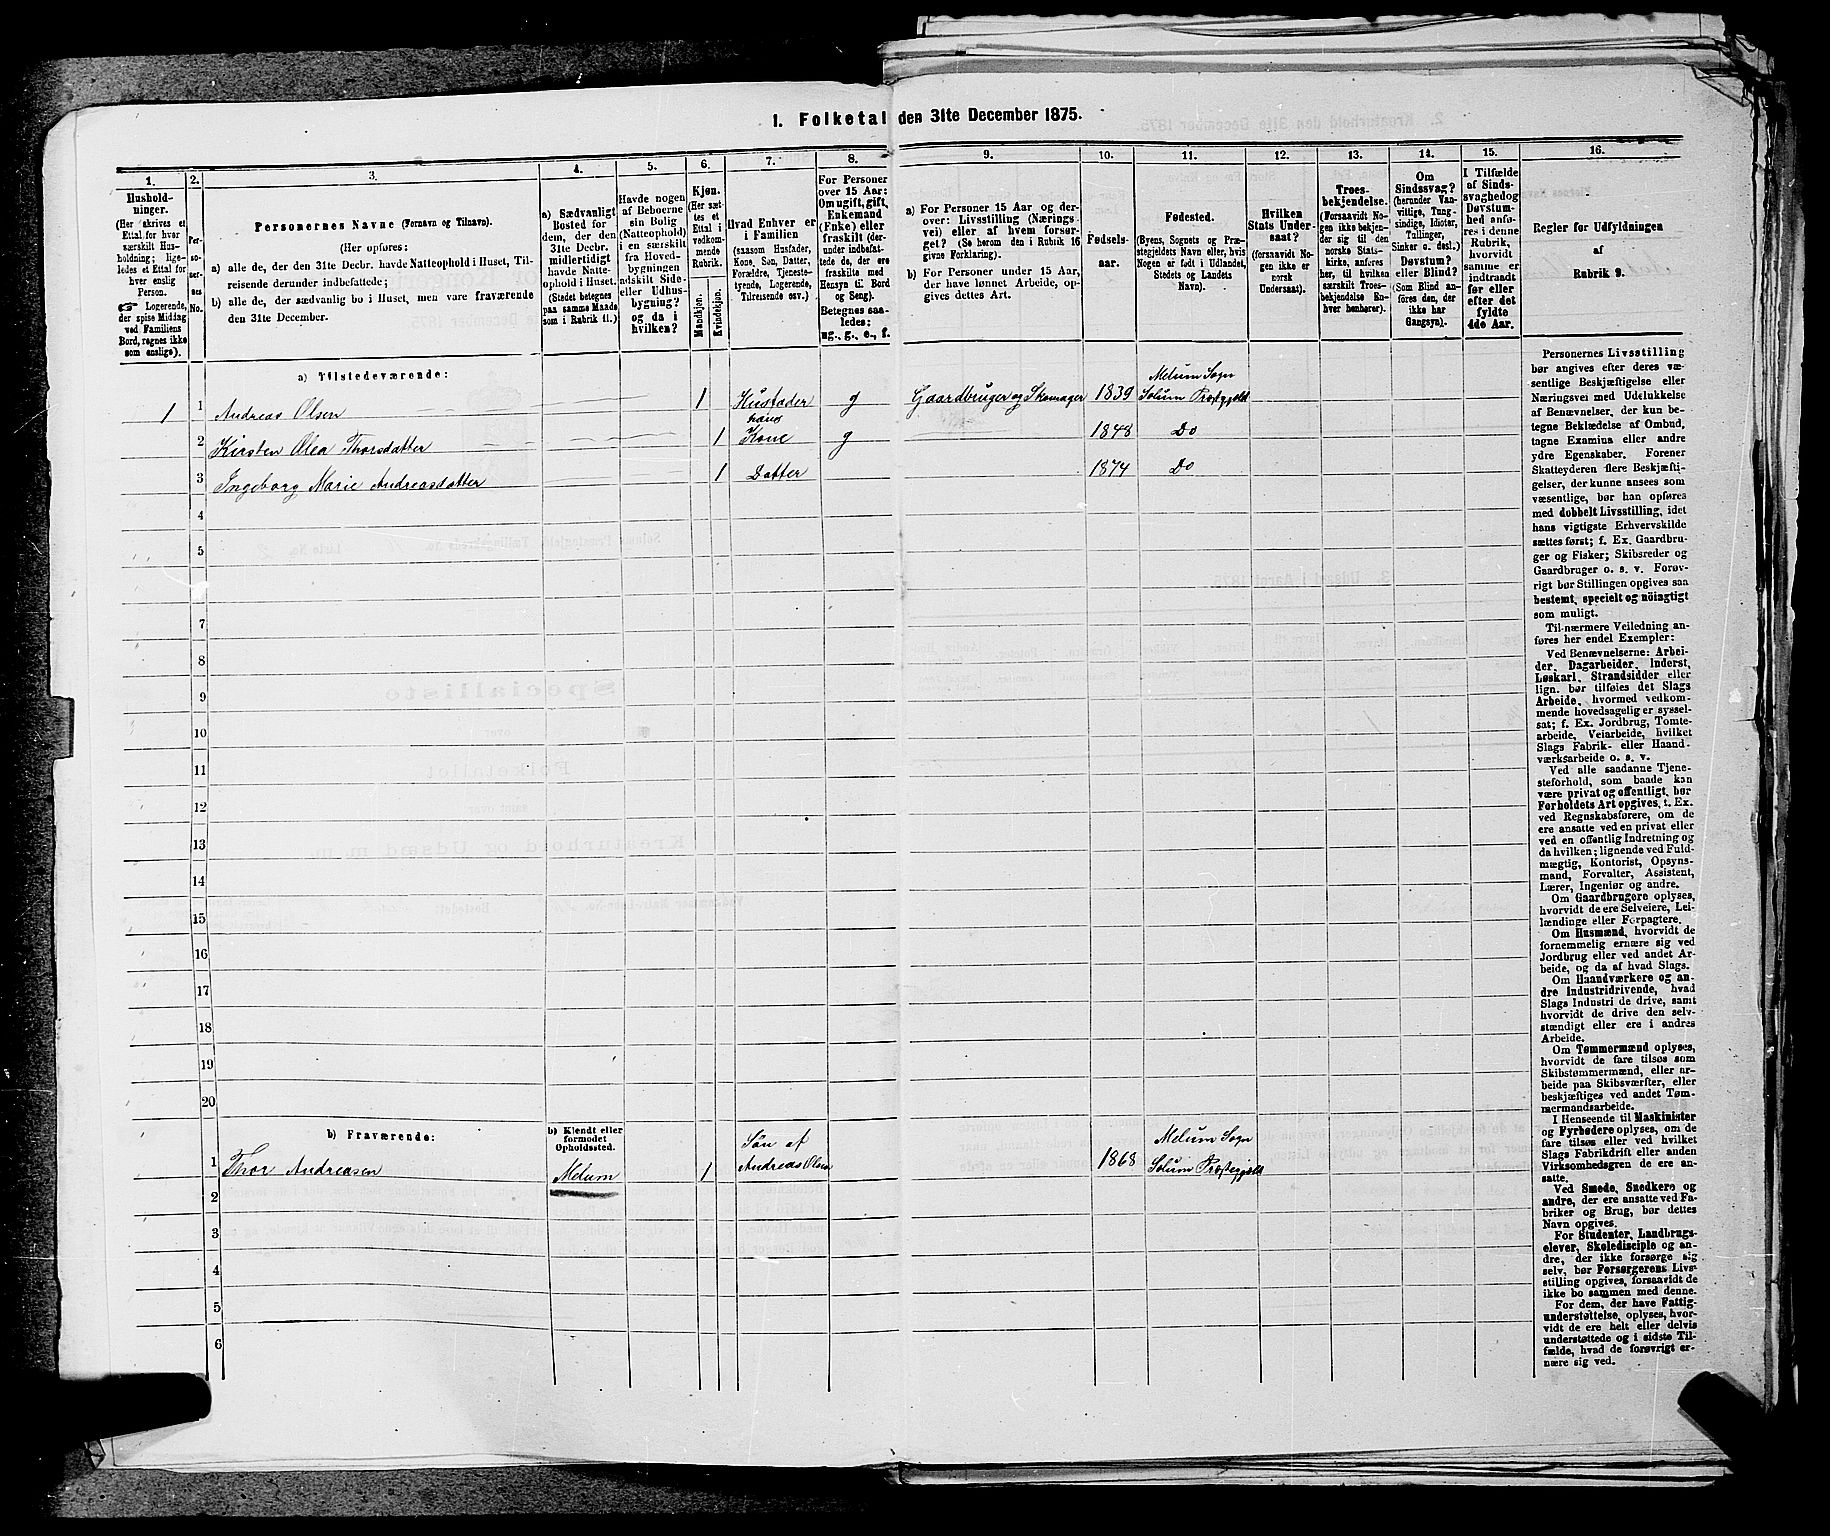 1. Folketal den 31te December 1875.
1.
Hushold-
ninger.
(Her skrives et
Ettal for hver
særskilt Hus-
holdning; lige-
ledes et Ettal for
hver enslig
Person.
Logerende,
der spise Middag
ved Familiens
Bord, regnes ikke
som enslige).
2.
Per-
so-
ner-
nes
No.
3.
Personernes Navne (Fornavn og Tilnavn).
(Her opføres:
a) alle de, der den 31te Decbr. havde Natteophold i Huset, Til-
reisende derunder indbefattede;
b) alle de, der sædvanlig bo i Huset, men vare fraværende
den 31te December.
4.
a) Sædvanligt
Bosted for
dem, der den
31te Decbr.
midlertidigt
havde Natte-
ophold i Huset.
(Stedet betegnes
paa samme Maade
som i Rubrik 11.)
5.
Havde nogen
af Beboerne
sin Bolig
(Natteophold)
i en særskilt
fra Hoved-
bygningen
adskilt Side-
eller Udhus-
bygning?
og da i
hvilken?
6.
Kjøn.
(Her sæt-
tes et
Ettal i
vedkom-
mende
Rubrik.
Mandkjøn.
Kvindekjøn.
7.
Hvad Enhver er
i Familien
(saasom Husfader,
Kone, Søn, Datter,
Forældre, Tjeneste-
tyende, Logerende,
Tilreisende osv.)
8.
For Personer
over 15 Aar:
Om ugift, gift,
Enkemand
(Enke) eller
fraskilt (der-
under indbefat-
tede de, der ere
fraskilte med
Hensyn til Bord
og Seng).
Betegnes saa-
ledes:
ug., g., e., f.
9.
a) For Personer 15 Aar og der-
over: Livsstilling (Nærings-
vei) eller af hvem forsør-
get? (Se herom den i Rubrik 16
givne Forklaring).
b) For Personer under 15 Aar,
der have lønnet Arbeide, op-
gives dettes Art.
10.
Fødsels-
aar.
11.
Fødested.
(Byens, Sognets og Præ-
stegjeldets Navn eller, hvis
Nogen er født i Udlandet,
Stedets og Landets
Navn).
12.
Hvilken
Stats Under-
saat?
(forsaavidt No-
gen ikke er
norsk
Undersaat).
13.
Troes-
bekjendelse.
(Forsaavidt No-
gen ikke bekjen-
der sig til den
norske Stats-
kirke, anføres
her, til hvilken
særskilt Troes-
bekjendelse En-
hver henhører).
14.
Om
Sindssvag?
(herunder Van-
vittige, Tung-
sindige, Idioter,
Tullinger,
Sinker o. desl.)
Døvstum?
eller Blind?
(Som Blind an-
føres den, der
ikke har
Gangsyn).
15.
I Tilfælde
af Sinds-
svaghed og
Døvstum-
hed anfø-
res i denne
Rubrik,
hvorvidt
samme er
indtraadt
før eller
efter det
fyldte
4de Aar.
16.
Regler for Udfyldningen
af
Rubrik 9.
a) Tilstedeværende:
1 1 Andreas Olsen 1 Husfader g Gaardbruger og Skomager 1839 Melum Sogn Solum Præstegjeld
2 Kirsten Olea Thorsdatter 1 hans Kone g 1848 Do
3 Ingeborg Marie Andreasdatter 1 Datter 1874 Do
4
5
6
7
8
9
10
11
12
13
14
15
16
17
18
19
20
b) Fraværende:
b) Kjendt eller
formodet
Opholdssted.
1 Thor Andreasen Melum 1 Søn af Andreas Olsen 1868 Melum Sogn Solum Præstegjeld
2
3
4
5
6
Personernes Livsstilling
bør angives efter deres væ-
sentlige Beskjæftigelse eller
Næringsvei med Udelukkelse
af Benævnelser, der kun be-
tegne Beklædelse af Ombud,
tagne Examina eller andre
ydre Egenskaber. Forener
Skatteyderen flere Beskjæfti-
gelser, der kunne ansees som
væsentlige, bør han opføres
med dobbelt Livsstilling, idet
hans vigtigste Erhvervskilde
sættes først; f. Ex. Gaardbru-
ger og Fisker; Skibsreder og
Gaardbruger o. s. v. Forøv-
rigt bør Stillingen opgives saa
bestemt, specielt og nöiagtigt
som muligt.
Til nærmere Veiledning an-
føres her endel Exempler:
Ved Benævnelserne: Arbei-
der, Dagarbeider, Inderst,
Løskarl, Strandsidder eller
lign. bør tilføies det Slags
Arbeide, hvormed vedkom-
mende hovedsagelig er syssel-
sat; f. Ex. Jordbrug, Tomte-
arbeide, Veiarbeide, hvilket
Slags Fabrik- eller Haand-
værksarbeide o. s. v.
Ved alle saadanne Tjene-
steforhold, som baade kan
være privat og offentligt, bør
Forholdets Art opgives, t. Ex.
ved Regnskabsførere, om de
ere ansatte ved en privat eller
ved en offentlig Indretning og
da hvilken; lignende ved Fuld-
mægtig, Kontorist, Opsyns-
mand, Forvalter, Assistent,
Lærer, Ingeniør og andre.
Om Gaardbrugere oplyses,
hvorvidt de ere Selveiere, Lei-
lændinge eller Forpagtere.
Om Husmænd, hvorvidt de
fornemmelig ernære sig ved
Jordbrug eller ved andet Ar-
beide, og da af hvad Slags.
Om Haandværkere og an-
dre Industridrivende, hvad
Slags Industri de drive, samt
hvorvidt de drive den selv-
stændigt eller ere i andres
Arbeide.
Om Tømmermænd oplyses,
hvorvidt de fare tilsøs som
Skibstømmermænd, eller ar-
beide paa Skibsværfter, eller
beskjæftiges ved andet Tøm-
mermandsarbeide.
I Henseende til Maskinister
og Fyrbødere oplyses, om de
fare tilsøs eller ved hvilket
Slags Fabrikdrift eller anden
Virksomhedsgren de ere an-
satte.
Ved Smede, Snedkere og
andre, der ere ansatte ved Fa-
briker og Brug, bør dettes
Navn opgives.
For Studenter, Landbrugs-
elever, Skoledisciple og an-
dre, der ikke forsørge sig
selv, bør Forsørgerens Livs-
stilling opgives, forsaavidt de
ikke bo sammen med denne.
For dem, der have Fattig-
understøttelse, oplyses, hvor-
vidt de ere helt eller delvis
understøttede og i sidste Til-
fælde, hvad de forøvrigt er-
nære sig ved.